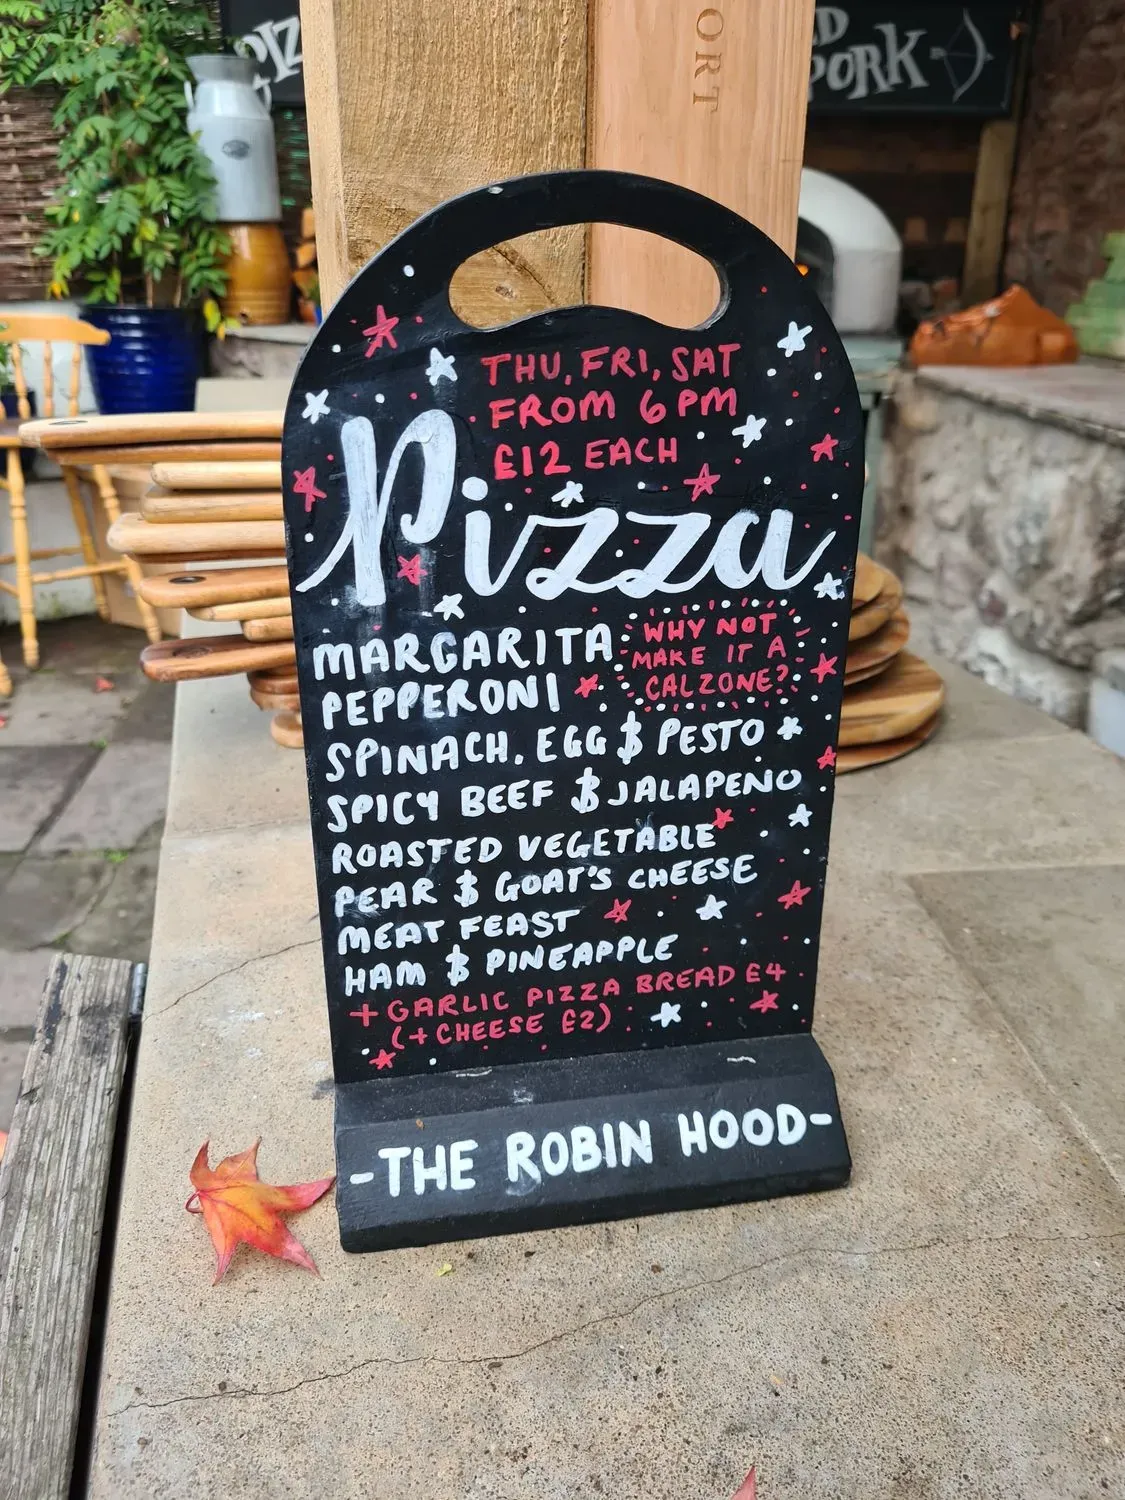 PIZ
ORT
D
PORK
THU, FRI, SAT
FROM 6PM
£12 EACH
Pizza
MARGARITA
PEPPERONI
WHY NOT
MAKE IT A
CALZONE?
SPINACH, EGG & PESTO
SPICY BEEF & JALAPENO
ROASTED VEGETABLE
PEAR & GOAT'S CHEESE
MEAT FEAST
HAM & PINEAPPLE
+ GARLIC PIZZA BREAD £4
(+ CHEESE £2)
-THE ROBIN HOOD-